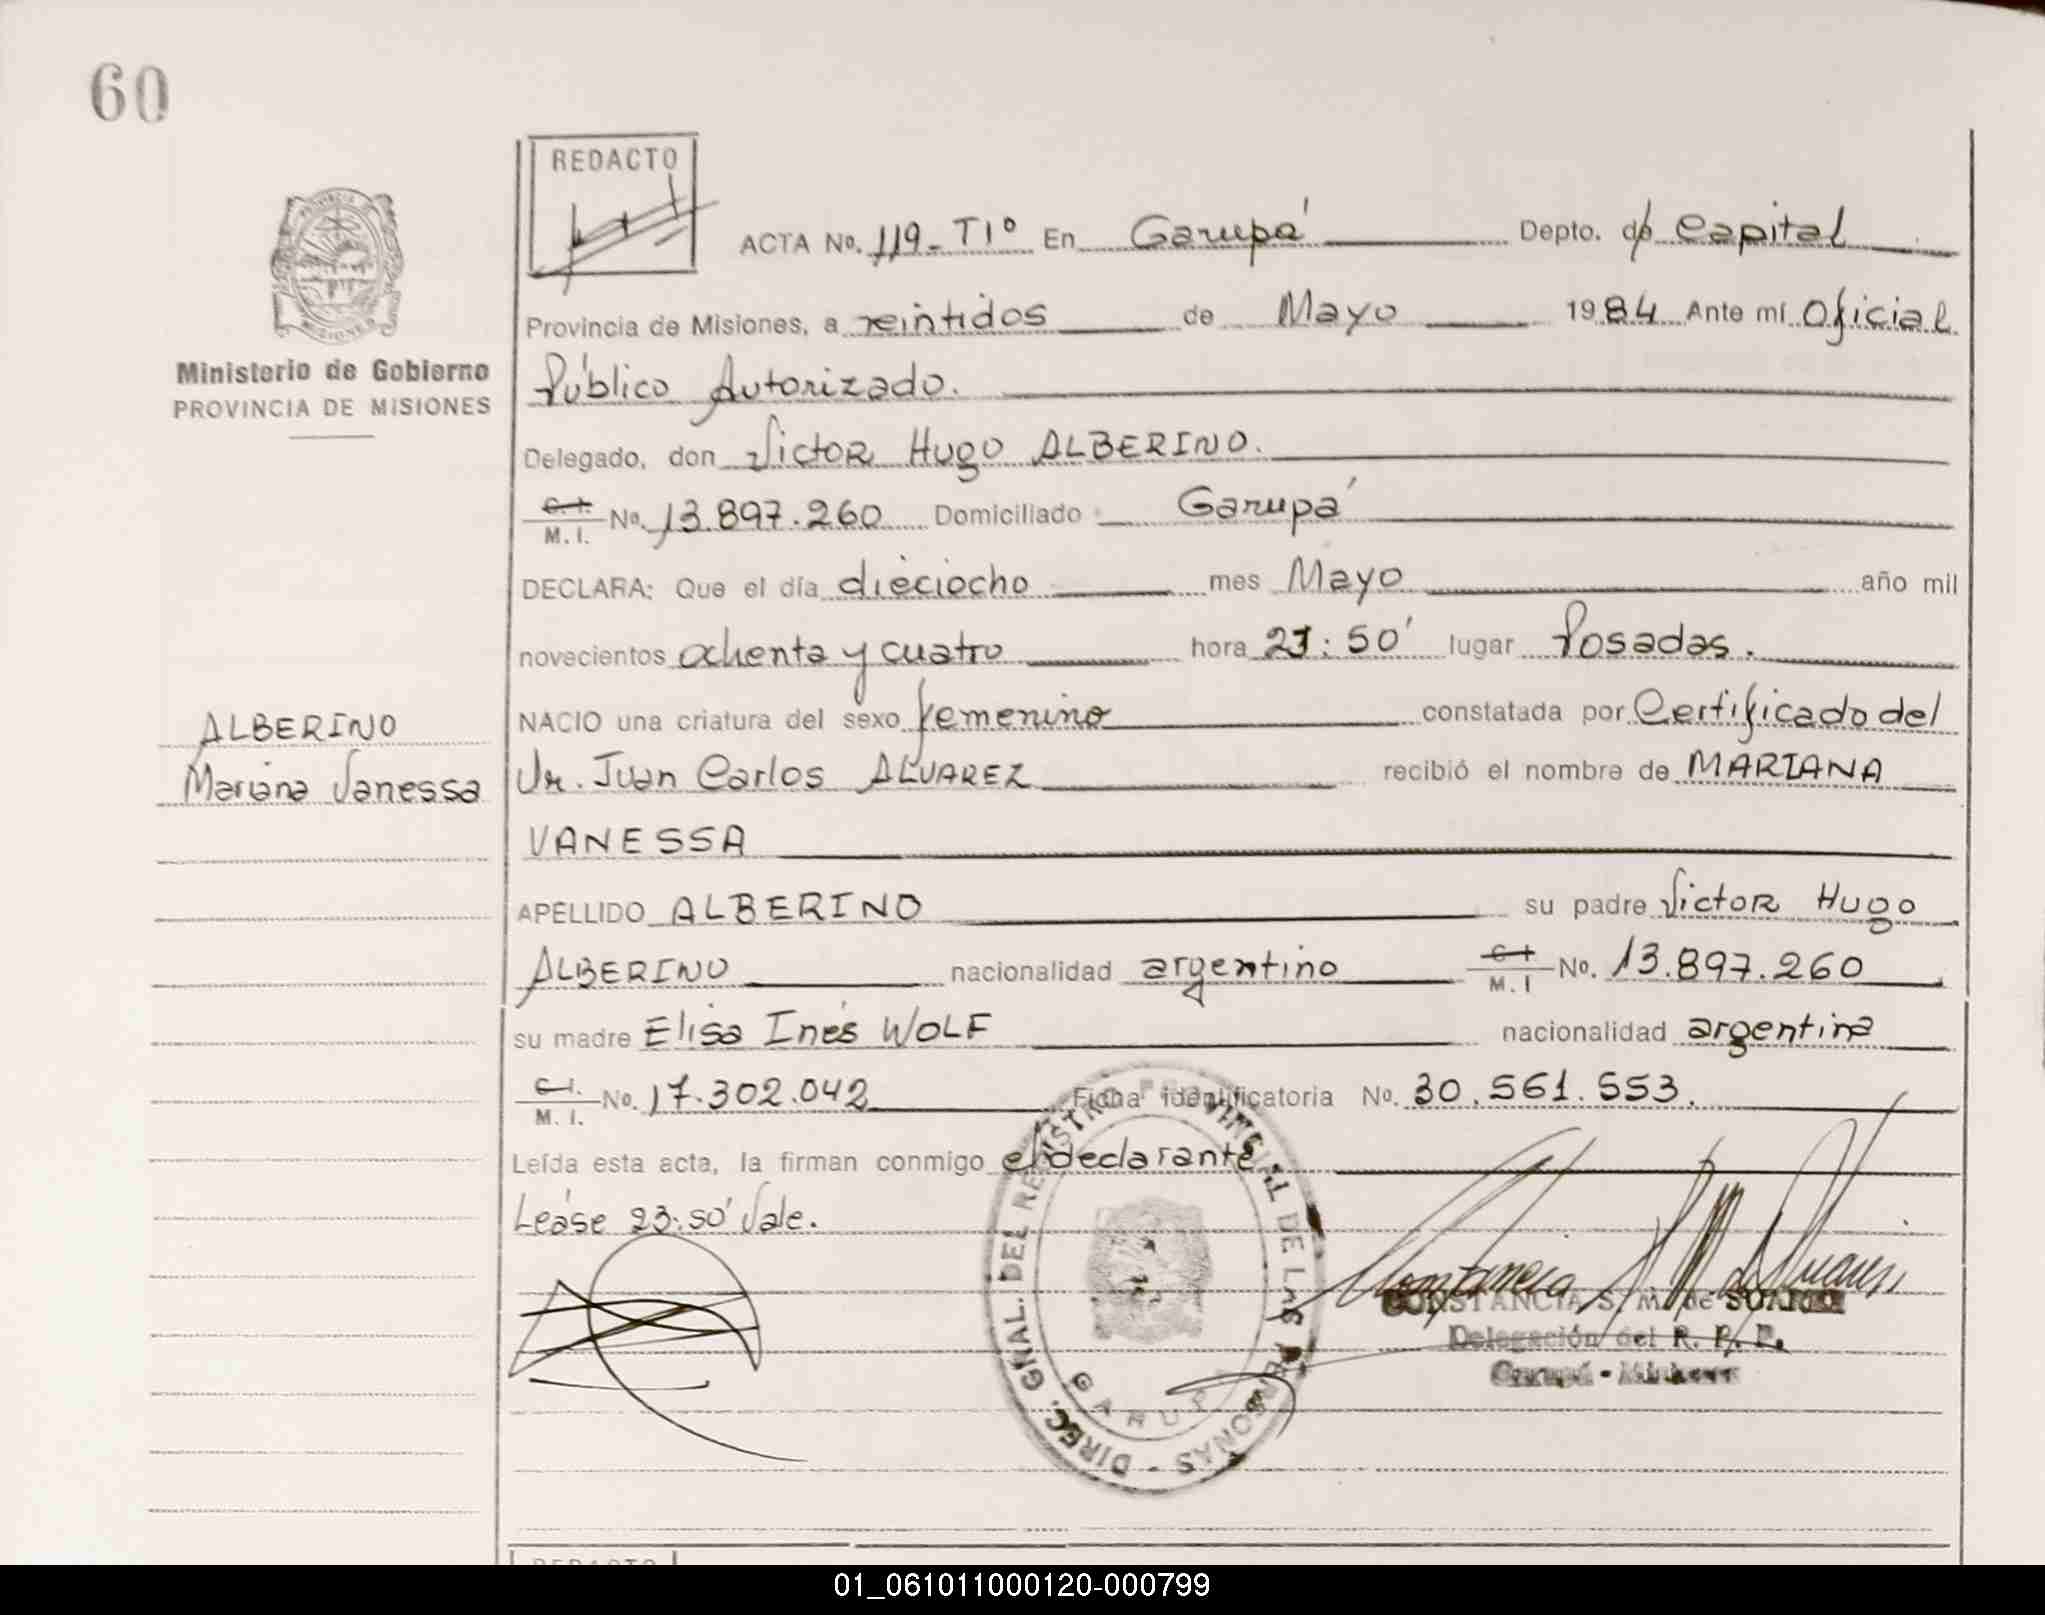 60
REDACTO
ACTA No. 119-TIº En Garupá Depto. de Capital
PROVINCIA DE MISIONES
Ministerio de Gobierno
PROVINCIA DE MISIONES
Provincia de Misiones, a veintidos de Mayo 1984 Ante mí Oficial
Público Autorizado.
Delegado, don Victor Hugo ALBERINO.
C. I.
M. I. No. 13.897.260 Domiciliado Garupá
DECLARA: Que el día dieciocho mes Mayo año mil
novecientos ochenta y cuatro hora 23:50' lugar Posadas.
NACIO una criatura del sexo femenino constatada por Certificado del
ALBERINO
Mariana Vanessa
Dr. Juan Carlos ALVAREZ recibió el nombre de MARIANA
VANESSA
APELLIDO ALBERINO su padre Victor Hugo
ALBERINO nacionalidad argentino C I
M. I No. 13.897.260
su madre Elisa Inés WOLF nacionalidad argentina
C I.
M. I. No. 17.302.042 Ficha identificatoria No. 30.561.553.
Leída esta acta, la firman conmigo el declarante
Leáse 23:50' Vale.
DIREC. GRAL. DEL REGISTRO PROVINCIAL DE LAS PERSONAS
GARUPA
CONSTANCIA S. M. de SUAREZ
Delegación del R. P. P.
Garupá - Misiones
REDACTO
01_061011000120-000799